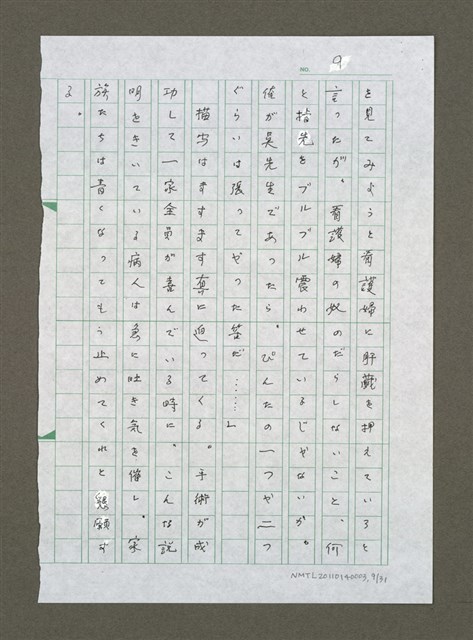 NO. 9
を見てみようと看護婦に肝臓を押えていろと
言ったが、看護婦の奴のだらしないこと、何
と指先をブルブル震わせているじゃないか。
俺が吴先生であったら、びんたの一つや二つ
ぐらいは張ってやった筈だ……」
描写はますます真に迫ってくる。手術が成
功して一家全員が喜んでいる時に、こんな説
明をきいている病人は急に吐き気を催し、家
族たちは青くなってもう止めてくれと懇願す
る。
NMTL20110140003,9/31